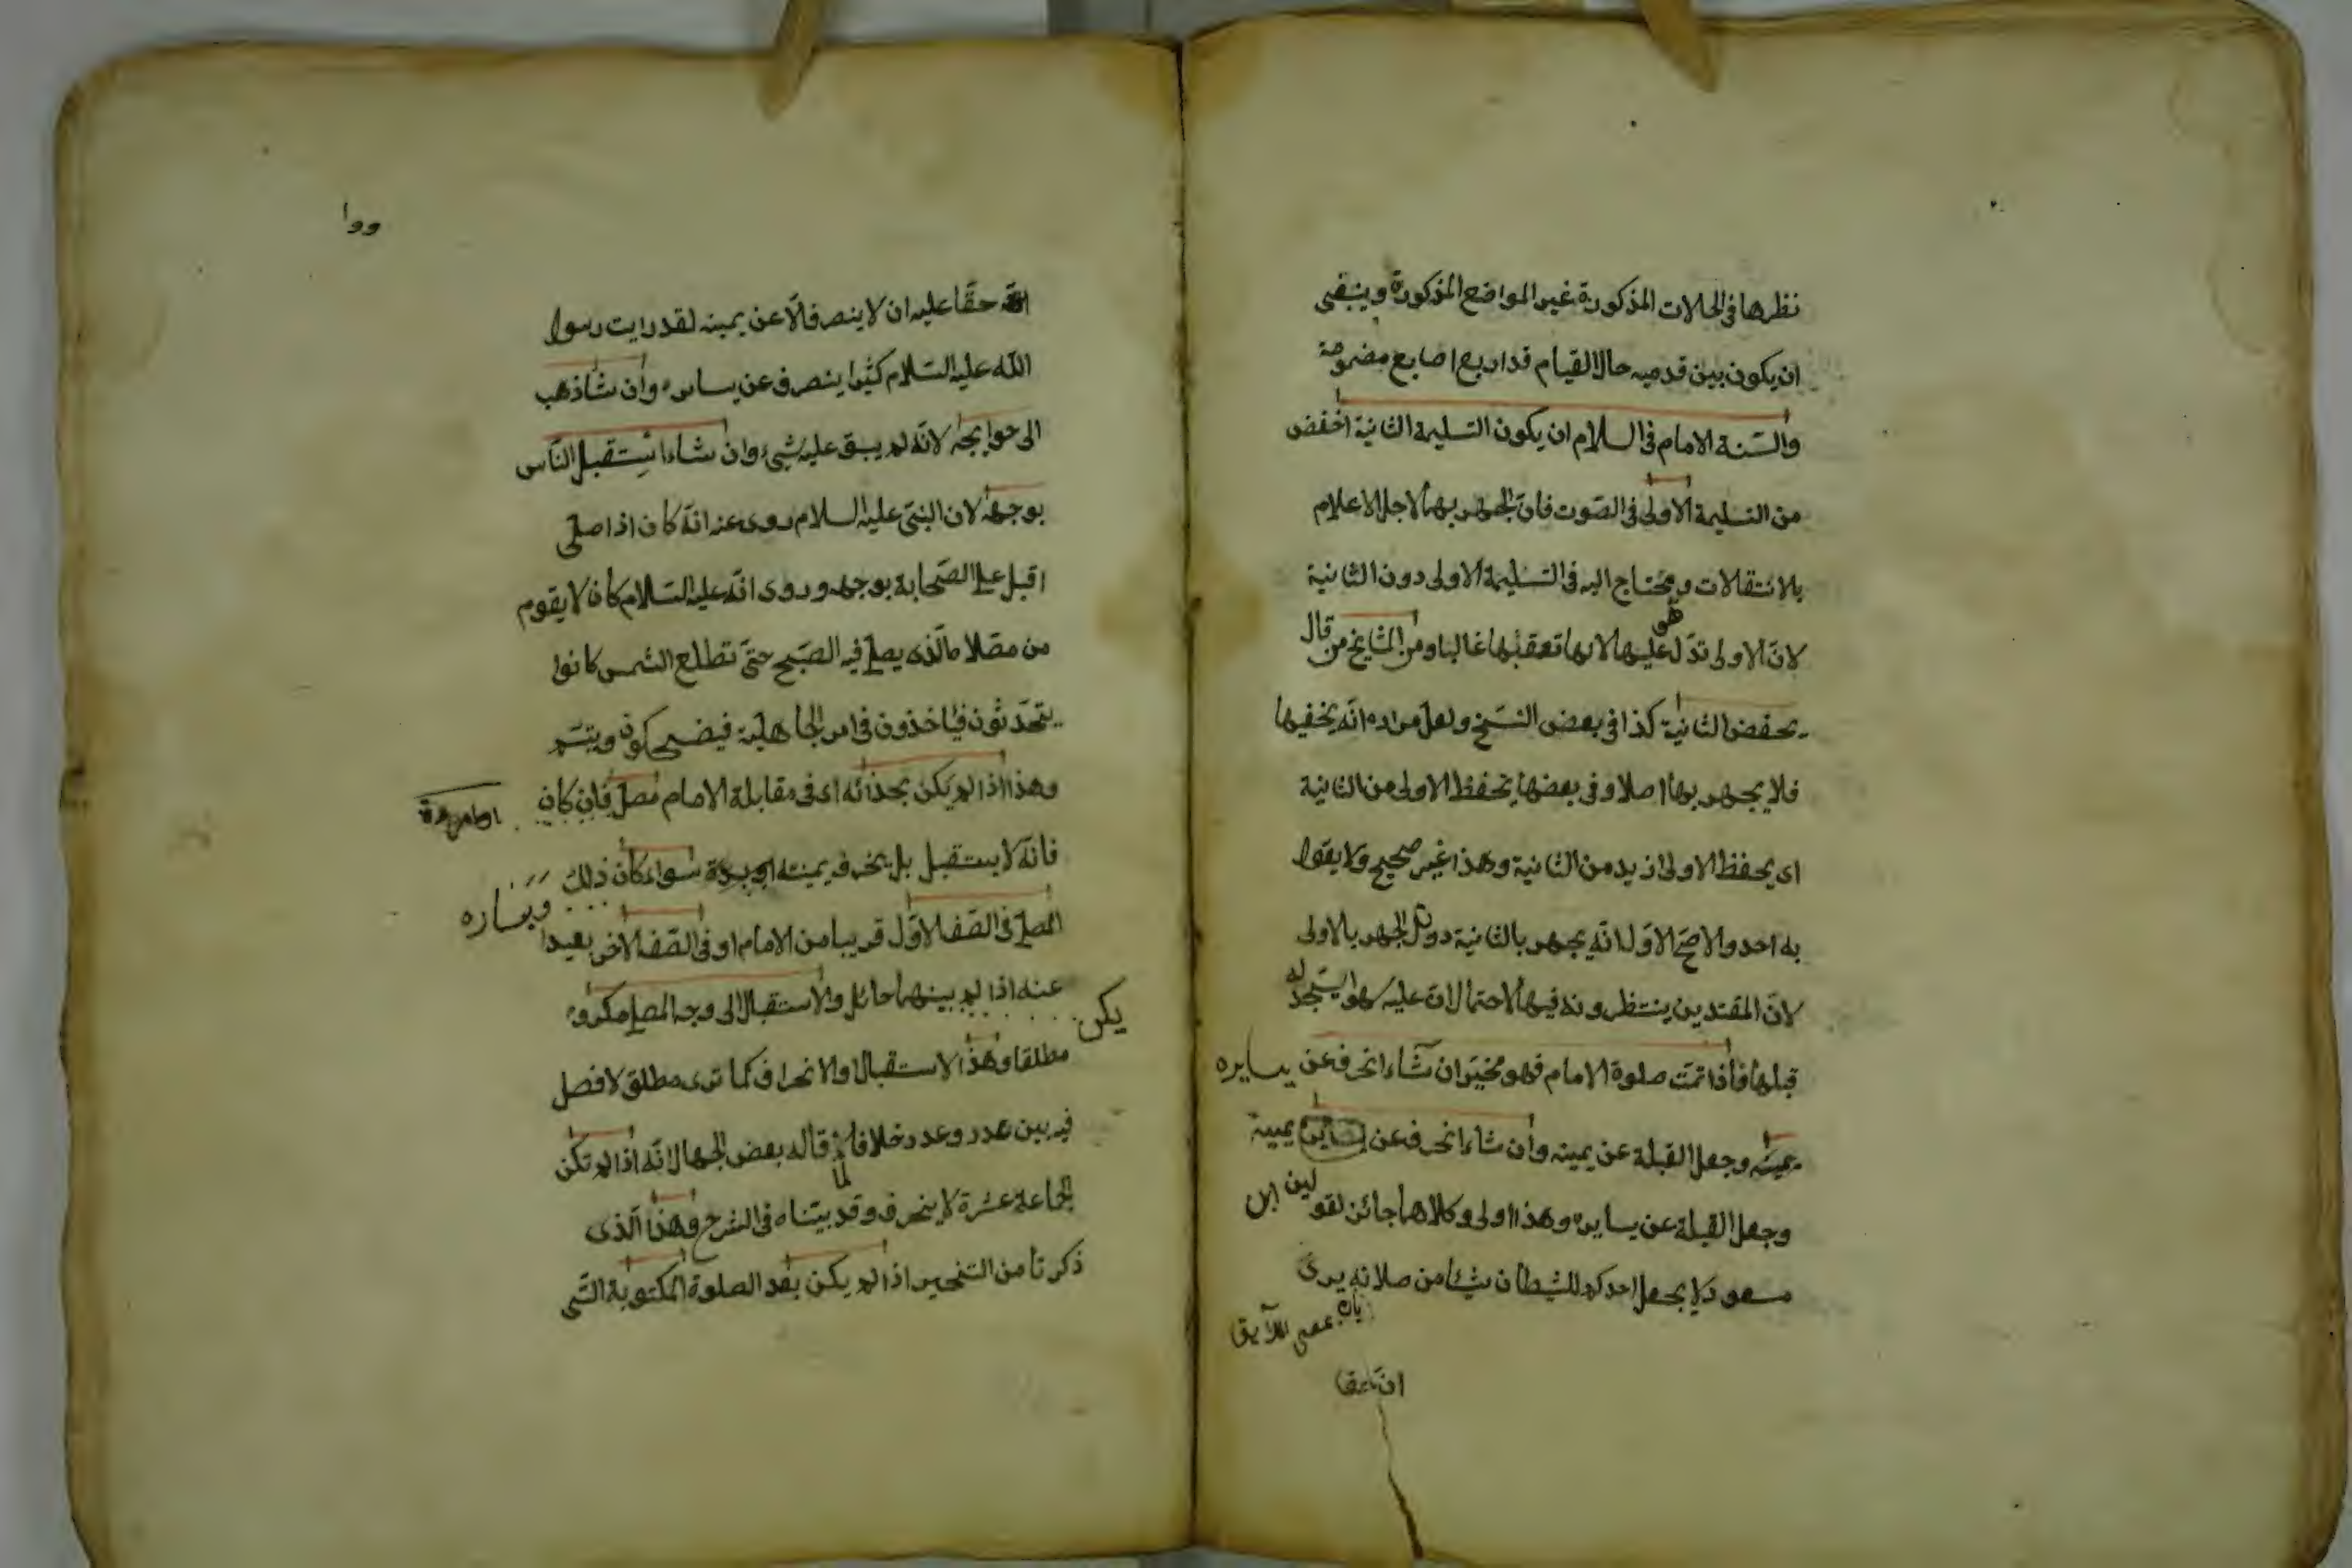 نظرها فى الحالات المذكورة غير المواضع المذكورة وينبغى
ان يكون بين قدميه حال القيام قدار بع اصابع مضمومة
والسّنة الامام فى السلام ان يكون التسليمة الثانية اخفض
من التسليمة الاولى فى الصّوت فانّ الجهر بهما لاجل الاعلام
بالانتقالات ومحتاج اليه فى التسليمة الاولى دون الثانية
هو
لانّ الاولى تدّل عليها لانها تعقبها غالبا ومن المشايخ من قال
يخفض الثانية كذا فى بعض النسّخ ولعل مراده انّه يخفيها
فلا يجهر بها اصلا وفى بعضها يخفظ الاولى من الثانية
اى يحفظ الاولى ازيد من الثانية وهذا غير صحيح ولا يقول
به احد والاصحّ الاوّل انّه يجهر بالثانية دون الجهر بالاولى
لانّ المقتدين ينتظرونه فيها لاحتمال انّ عليه سهوا يسجد له
قبلها فاذا تمّت صلوة الامام فهو مخيّر ان شاء انحرف عن يسايره
وجعل القبلة عن يمينه وان شاء انحرف عن يمينه
وجعل القبلة عن يسايره وهذا اولى وكلاهما جائز لقول ابن
مسعود لا يجعل احدكم للشيطان شيئا من صلاته يرى
انّ حقا
وو١
الله حقّا عليه ان لا ينصرف الّا عن يمينه لقد رايت رسول
الله عليه السّلام كثيرا ينصرف عن يساره وان شاذهب
الى حوايجه لانّه لم يبق عليه شىء وان شاء استقبل النّاس
بوجهه لان النبىّ عليه السلام روى عنه انّه كان اذا صلى
اقبل على الصّحابة بوجهه وروى انّه عليه السّلام كان لا يقوم
من مصّلاه الّذى يصلى فيه الصّبح حتىّ تطلع الشمس كانوا
يتحدّثون فياخذون فى امر الجاهليّة فيضحكون ويتبسّم
وهذا اذا لم يكن بحذائه اى فى مقابلة الامام مصلّ فان كان
فانّه لا يستقبل بل ينحرف يمينته او يسرة سواء كان ذلك
ويساره
المصلى فى الصّف الاوّل قريبا من الامام او فى الصّف الاخر بعيدا
عنه اذا لم بينهما حائل والاستقبال الى وجه المصلى مكروه
يكن
مطلقا وهذا الاستقبال والانحراف كما ترى مطلق لا فصل
فيه بين عدد وعدد خلافا لما قاله بعض الجهال انّه اذا لم تكن
الجماعة عشرة لا ينحرف وقد بيّناه فى الشرح وهذا الّذى
ذكرنا من التخيير اذا لم يكن بعد الصلوة المكتوبة الّتى